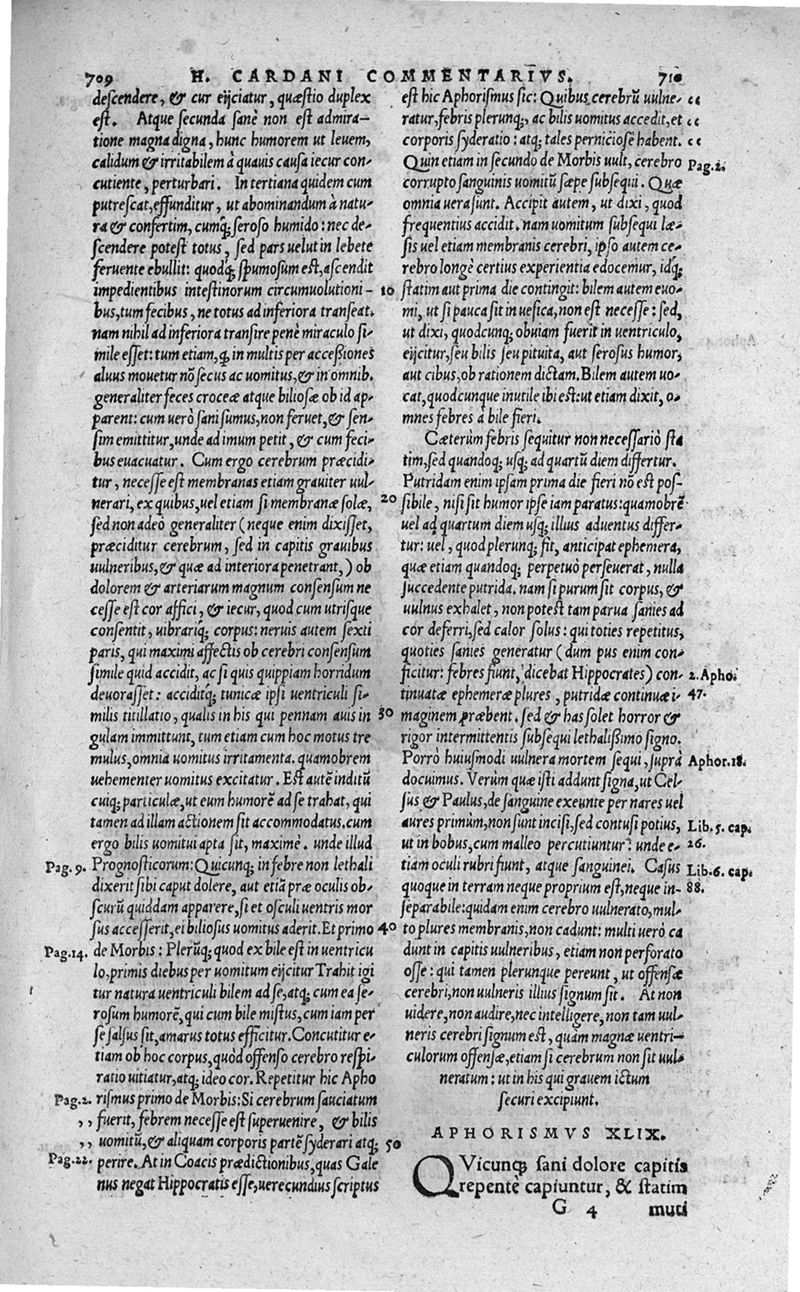 709 H. CARDANI COMMENTARIVS. 710
descendere, & cur eijciatur, quæstio duplex
est. Atque secunda sanè non est admira-
tione magna digna, hunc humorem ut leuem,
calidum & irritabilem à quauis causa iecur con-
cutiente, perturbari. In tertiana quidem cum
putrescat, effunditur, ut abominandum à natu-
ra & confertim, cumq; seroso humido: nec de-
scendere potest totus, sed pars uelut in lebete
feruente ebullit: quodq; spumosum est, ascendit
impedientibus intestinorum circumuolutioni-
bus, tum fecibus, ne totus ad inferiora transeat.
nam nihil ad inferiora transire penè miraculo si-
mile esset: tum etiam, q, in multis per accessiones
aluus mouetur nõ secus ac uomitus, & in omnib.
generaliter feces croceæ atque biliosæ ob id ap-
parent: cum uerò sani sumus, non feruet, & sen-
sim emittitur, unde ad imum petit, & cum feci-
bus euacuatur. Cum ergo cerebrum præcidi-
tur, necesse est membranas etiam grauiter uul-
nerari, ex quibus, uel etiam si membranæ solæ,
sed non adeò generaliter (neque enim dixisset,
præciditur cerebrum, sed in capitis grauibus
uulneribus, & quæ ad interiora penetrant,) ob
dolorem & arteriarum magnum consensum ne
cesse est cor affici, & iecur, quod cum utrisque
consentit, uibrariq; corpus: neruis autem sexti
paris, qui maximi affectis ob cerebri consensum
simile quid accidit, ac si quis quippiam horridum
deuorasset: acciditq; tunicæ ipsi uentriculi si-
milis titillatio, qualis in his qui pennam auis in
gulam immittunt, tum etiam cum hoc motus tre
mulus, omnia uomitus irritamenta. quamobrem
uehementer uomitus excitatur. Est autẽ inditũ
cuiq; particulæ, ut eum humorẽ ad se trahat, qui
tamen ad illam actionem sit accommodatus. cum
ergo bilis uomitui apta sit, maximè. unde illud
Pag. 9. Prognosticorum: Quicunq; in febre non lethali
dixerit sibi caput dolere, aut etiã præ oculis ob-
scurũ quiddam apparere, si et osculi uentris mor
sus accesserit, ei biliosus uomitus aderit. Et primo
Pag. 14. de Morbis: Plerũq; quod ex bile est in uentricu
lo, primis diebus per uomitum eijcitur Trahit igi
tur natura uentriculi bilem ad se, atq; cum ea se-
rosum humorẽ, qui cum bile mistus, cum iam per
se salsus sit, amarus totus efficitur. Concutitur e-
tiam ob hoc corpus, quòd offenso cerebro respi-
ratio uitiatur, atq; ideo cor. Repetitur hic Apho
Pag. 2. rismus primo de Morbis: Si cerebrum sauciatum
,, fuerit, febrem necesse est superuenire, & bilis
,, uomitũ, & aliquam corporis partẽ syderari atq;
Pag. 22. perire. At in Coacis prædictionibus, quas Gale
nus negat Hippocratis esse, uerecundius scriptus
est hic Aphorismus sic: Quibus cerebrũ uulne- ‹‹
ratur, febris plerunq;, ac bilis uomitus accedit, et ‹‹
corporis syderatio: atq; tales perniciosè habent. ‹‹
Quin etiam in secundo de Morbis uult, cerebro Pag. 2.
corrupto sanguinis uomitũ sæpe subsequi. Quæ
omnia uera sunt. Accipit autem, ut dixi, quod
frequentius accidit. nam uomitum subsequi læ-
sis uel etiam membranis cerebri, ipso autem ce-
rebro longè certius experientia edocemur, idq;
10 statim aut prima die contingit: bilem autem euo-
mi, ut si pauca sit in uesica, non est necesse: sed,
ut dixi, quodcunq; obuiam fuerit in uentriculo,
eijcitur, seu bilis seu pituita, aut serosus humor,
aut cibus, ob rationem dictam. Bilem autem uo-
cat, quodcunque inutile ibi est: ut etiam dixit, o-
mnes febres à bile fieri.
Cæterùm febris sequitur non necessariò sta
tim, sed quandoq; usq; ad quartũ diem differtur.
Putridam enim ipsam prima die fieri nõ est pos-
20 sibile, nisi sit humor ipse iam paratus: quamobrẽ
uel ad quartum diem usq; illius aduentus differ-
tur: uel, quod plerunq; fit, anticipat ephemera,
quæ etiam quandoq; perpetuò perseuerat, nulla
succedente putrida. nam si purum sit corpus, &
uulnus exhalet, non potest tam parua sanies ad
cor deferri, sed calor solus: qui toties repetitus,
quoties sanies generatur (dum pus enim con-
ficitur: febres fiunt, dicebat Hippocrates) con- 2. Apho.
tinuatæ ephemeræ plures, putridæ continuæ i- 47.
30 maginem præbent. sed & has solet horror &
rigor intermittentis subsequi lethalissimo signo.
Porrò huiusmodi uulnera mortem sequi, suprà Aphor. 18.
docuimus. Verùm quæ isti addunt signa, ut Cel-
sus & Paulus, de sanguine exeunte per nares uel
aures primùm, non sunt incisi, sed contusi potius, Lib. 5. cap.
ut in bobus, cum malleo percutiuntur: unde e- 26.
tiam oculi rubri fiunt, atque sanguinei. Casus Lib. 6. cap.
quoque in terram neque proprium est, neque in- 88.
separabile: quidam enim cerebro uulnerato, mul-
40 to plures membranis, non cadunt: multi uerò ca
dunt in capitis uulneribus, etiam non perforato
osse: qui tamen plerunque pereunt, ut offensæ
cerebri, non uulneris illius signum sit. At non
uidere, non audire, nec intelligere, non tam uul-
neris cerebri signum est, quam magnæ uentri-
culorum offensæ, etiam si cerebrum non sit uul-
neratum: ut in his qui grauem ictum
securi excipiunt.
APHORISMVS XLIX.
50 QVicunq; sani dolore capitis
repentè capiuntur, & statim
G 4 muti